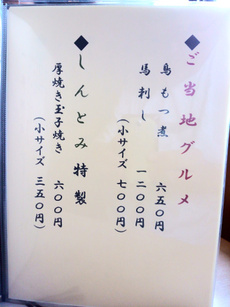 ◆ご当地グルメ
鳥もつ煮 六五〇円
馬刺し 一二〇〇円
（小サイズ 七〇〇円）
◆しんとみ特製
厚焼き玉子焼き 六〇〇円
（小サイズ 三五〇円）